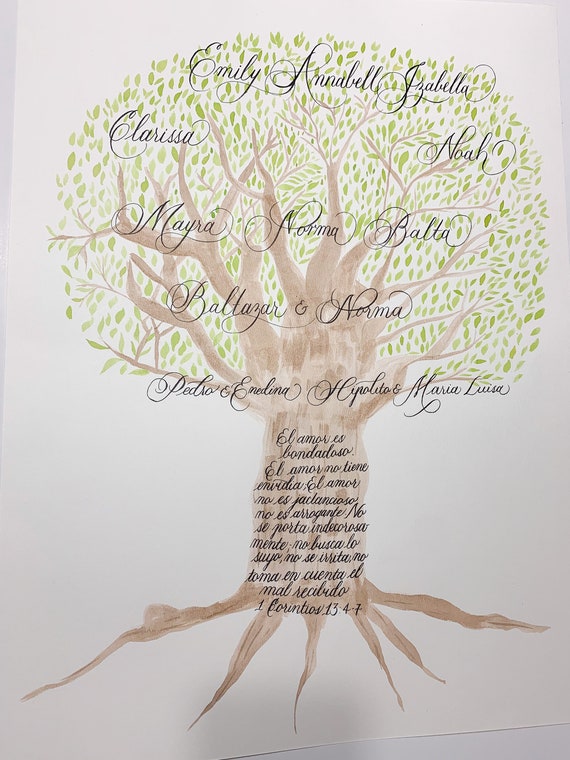 Emily Annabell Izabella
Clarissa Noah
Mayra Norma Balta
Baltazar & Norma
Pedro & Enedina Hipolito & Maria Luisa
El amor es
bondadoso.
El amor no tiene
envidia; El amor
no es jactancioso,
no es arrogante; No
se porta indecorosa
mente; no busca lo
suyo, no se irrita, no
toma en cuenta el
mal recibido
1 Corintios 13:4-7